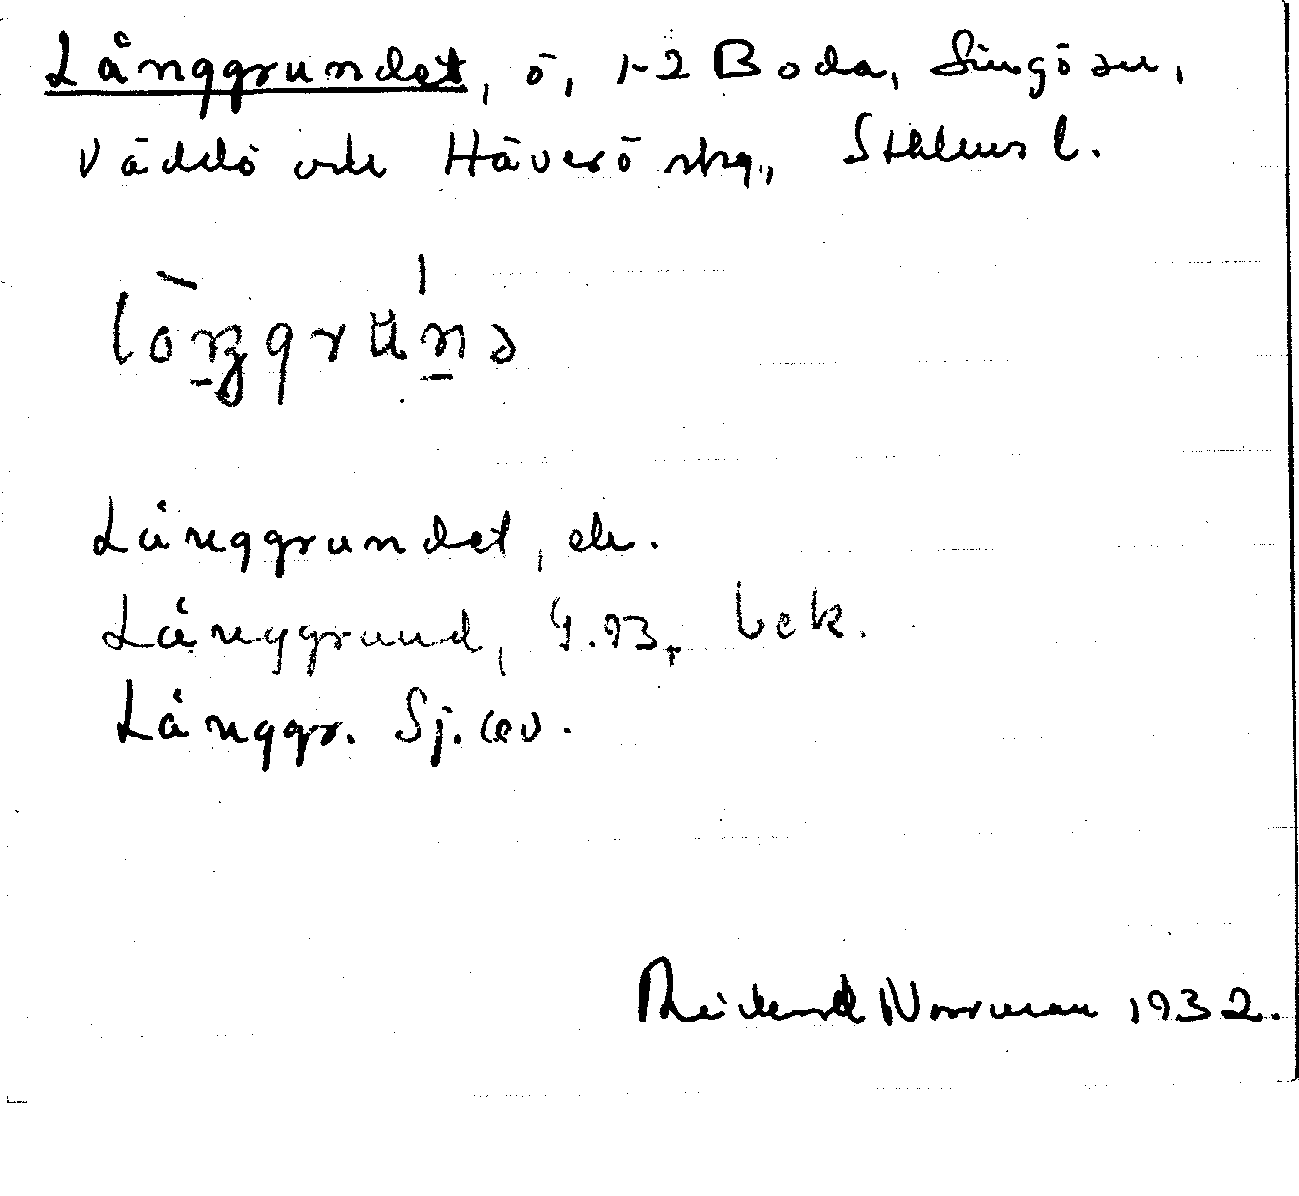 Långgrundet, ö, 1-2 Boda, Singö sn,
Väddö och Häverö skg., Sthlms l.
Långgrundet, ek.
Långgrund, G.93, bek.
Långgr. Sj. öv.
Reidend Norrman 1932.